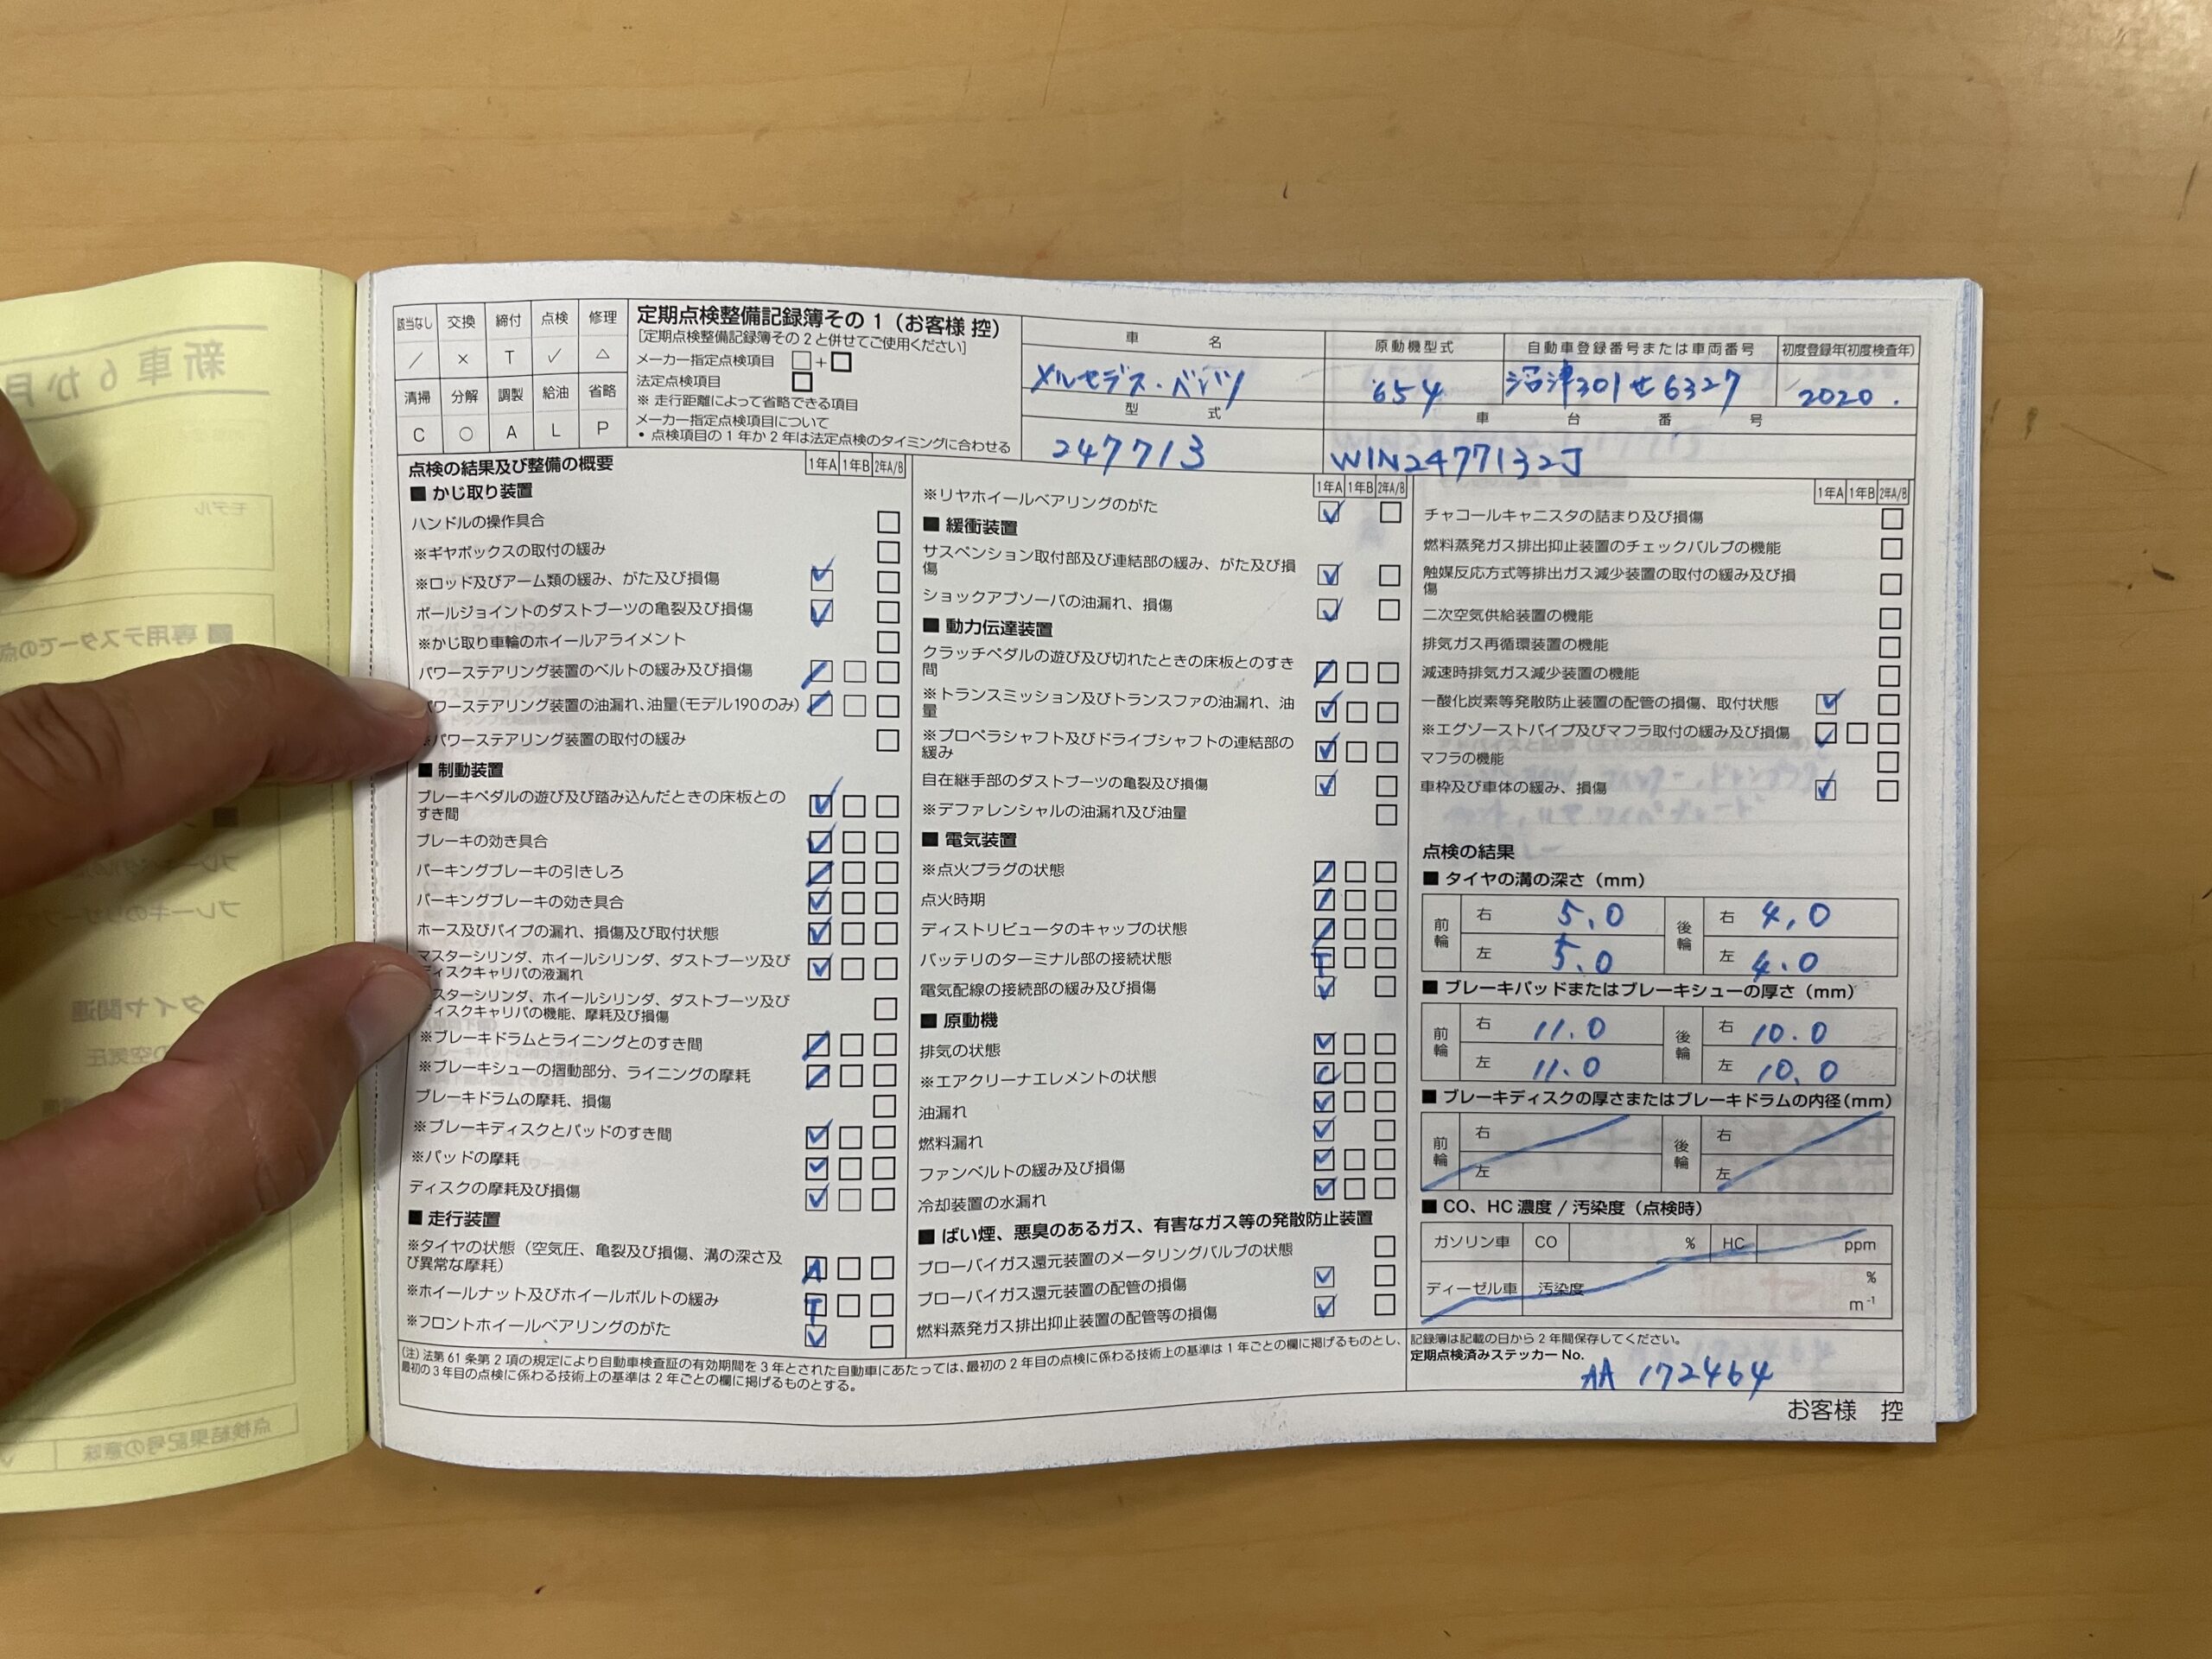 該当なし 交換 締付 点検 修理
／ × T ✓ △
清掃 分解 調製 給油 省略
C ○ A L P
定期点検整備記録簿その1（お客様 控）
［定期点検整備記録簿その2と併せてご使用ください］
メーカー指定点検項目 □+□
法定点検項目 □
※ 走行距離によって省略できる項目
メーカー指定点検項目について
・点検項目の1年か2年は法定点検のタイミングに合わせる
車 名
メルセデス・ベンツ
型 式
247713
原動機型式
654
自動車登録番号または車両番号
沼津301せ6327
初度登録年(初度検査年)
2020.
車 台 番 号
W1N2477132J
点検の結果及び整備の概要 1年A 1年B 2年A/B
■ かじ取り装置
ハンドルの操作具合
※ギヤボックスの取付の緩み
※ロッド及びアーム類の緩み、がた及び損傷 ✓
ボールジョイントのダストブーツの亀裂及び損傷 ✓
※かじ取り車輪のホイールアライメント
パワーステアリング装置のベルトの緩み及び損傷 ／
パワーステアリング装置の油漏れ、油量(モデル190のみ) ／
※パワーステアリング装置の取付の緩み
■ 制動装置
ブレーキペダルの遊び及び踏み込んだときの床板との
すき間 ✓
ブレーキの効き具合 ✓
パーキングブレーキの引きしろ ／
パーキングブレーキの効き具合 ✓
ホース及びパイプの漏れ、損傷及び取付状態 ✓
マスターシリンダ、ホイールシリンダ、ダストブーツ及び
ディスクキャリパの液漏れ ✓
スターシリンダ、ホイールシリンダ、ダストブーツ及び
ィスクキャリパの機能、摩耗及び損傷
※ブレーキドラムとライニングとのすき間 ／
※ブレーキシューの摺動部分、ライニングの摩耗 ／
ブレーキドラムの摩耗、損傷
※ブレーキディスクとパッドのすき間 ✓
※パッドの摩耗 ✓
ディスクの摩耗及び損傷 ✓
■ 走行装置
※タイヤの状態（空気圧、亀裂及び損傷、溝の深さ及
び異常な摩耗） A
※ホイールナット及びホイールボルトの緩み T
※フロントホイールベアリングのがた ✓
1年A 1年B 2年A/B
※リヤホイールベアリングのがた ✓
■ 緩衝装置
サスペンション取付部及び連結部の緩み、がた及び損
傷 ✓
ショックアブソーバの油漏れ、損傷 ✓
■ 動力伝達装置
クラッチペダルの遊び及び切れたときの床板とのすき
間 ／
※トランスミッション及びトランスファの油漏れ、油
量 ✓
※プロペラシャフト及びドライブシャフトの連結部の
緩み ✓
自在継手部のダストブーツの亀裂及び損傷 ✓
※デファレンシャルの油漏れ及び油量
■ 電気装置
※点火プラグの状態 ／
点火時期 ／
ディストリビュータのキャップの状態 ／
バッテリのターミナル部の接続状態 T
電気配線の接続部の緩み及び損傷 ✓
■ 原動機
排気の状態 ✓
※エアクリーナエレメントの状態 C
油漏れ ✓
燃料漏れ ✓
ファンベルトの緩み及び損傷 ✓
冷却装置の水漏れ ✓
■ ばい煙、悪臭のあるガス、有害なガス等の発散防止装置
ブローバイガス還元装置のメータリングバルブの状態
ブローバイガス還元装置の配管の損傷 ✓
燃料蒸発ガス排出抑止装置の配管等の損傷 ✓
1年A 1年B 2年A/B
チャコールキャニスタの詰まり及び損傷
燃料蒸発ガス排出抑止装置のチェックバルブの機能
触媒反応方式等排出ガス減少装置の取付の緩み及び損
傷
二次空気供給装置の機能
排気ガス再循環装置の機能
減速時排気ガス減少装置の機能
一酸化炭素等発散防止装置の配管の損傷、取付状態 ✓
※エグゾーストパイプ及びマフラ取付の緩み及び損傷 ✓
マフラの機能
車枠及び車体の緩み、損傷 ✓
点検の結果
■ タイヤの溝の深さ（mm）
前輪 右 5.0 後輪 右 4.0
左 5.0 左 4.0
■ ブレーキパッドまたはブレーキシューの厚さ（mm）
前輪 右 11.0 後輪 右 10.0
左 11.0 左 10.0
■ ブレーキディスクの厚さまたはブレーキドラムの内径(mm)
前輪 右 後輪 右
左 左
■ CO、HC濃度 / 汚染度（点検時）
ガソリン車 CO % HC ppm
ディーゼル車 汚染度 %
m-1
(注) 法第61条第2項の規定により自動車検査証の有効期間を3年とされた自動車にあたっては、最初の2年目の点検に係わる技術上の基準は1年ごとの欄に掲げるものとし、
最初の3年目の点検に係わる技術上の基準は2年ごとの欄に掲げるものとする。
記録簿は記載の日から2年間保存してください。
定期点検済みステッカー No.
AA 172464
お客様 控